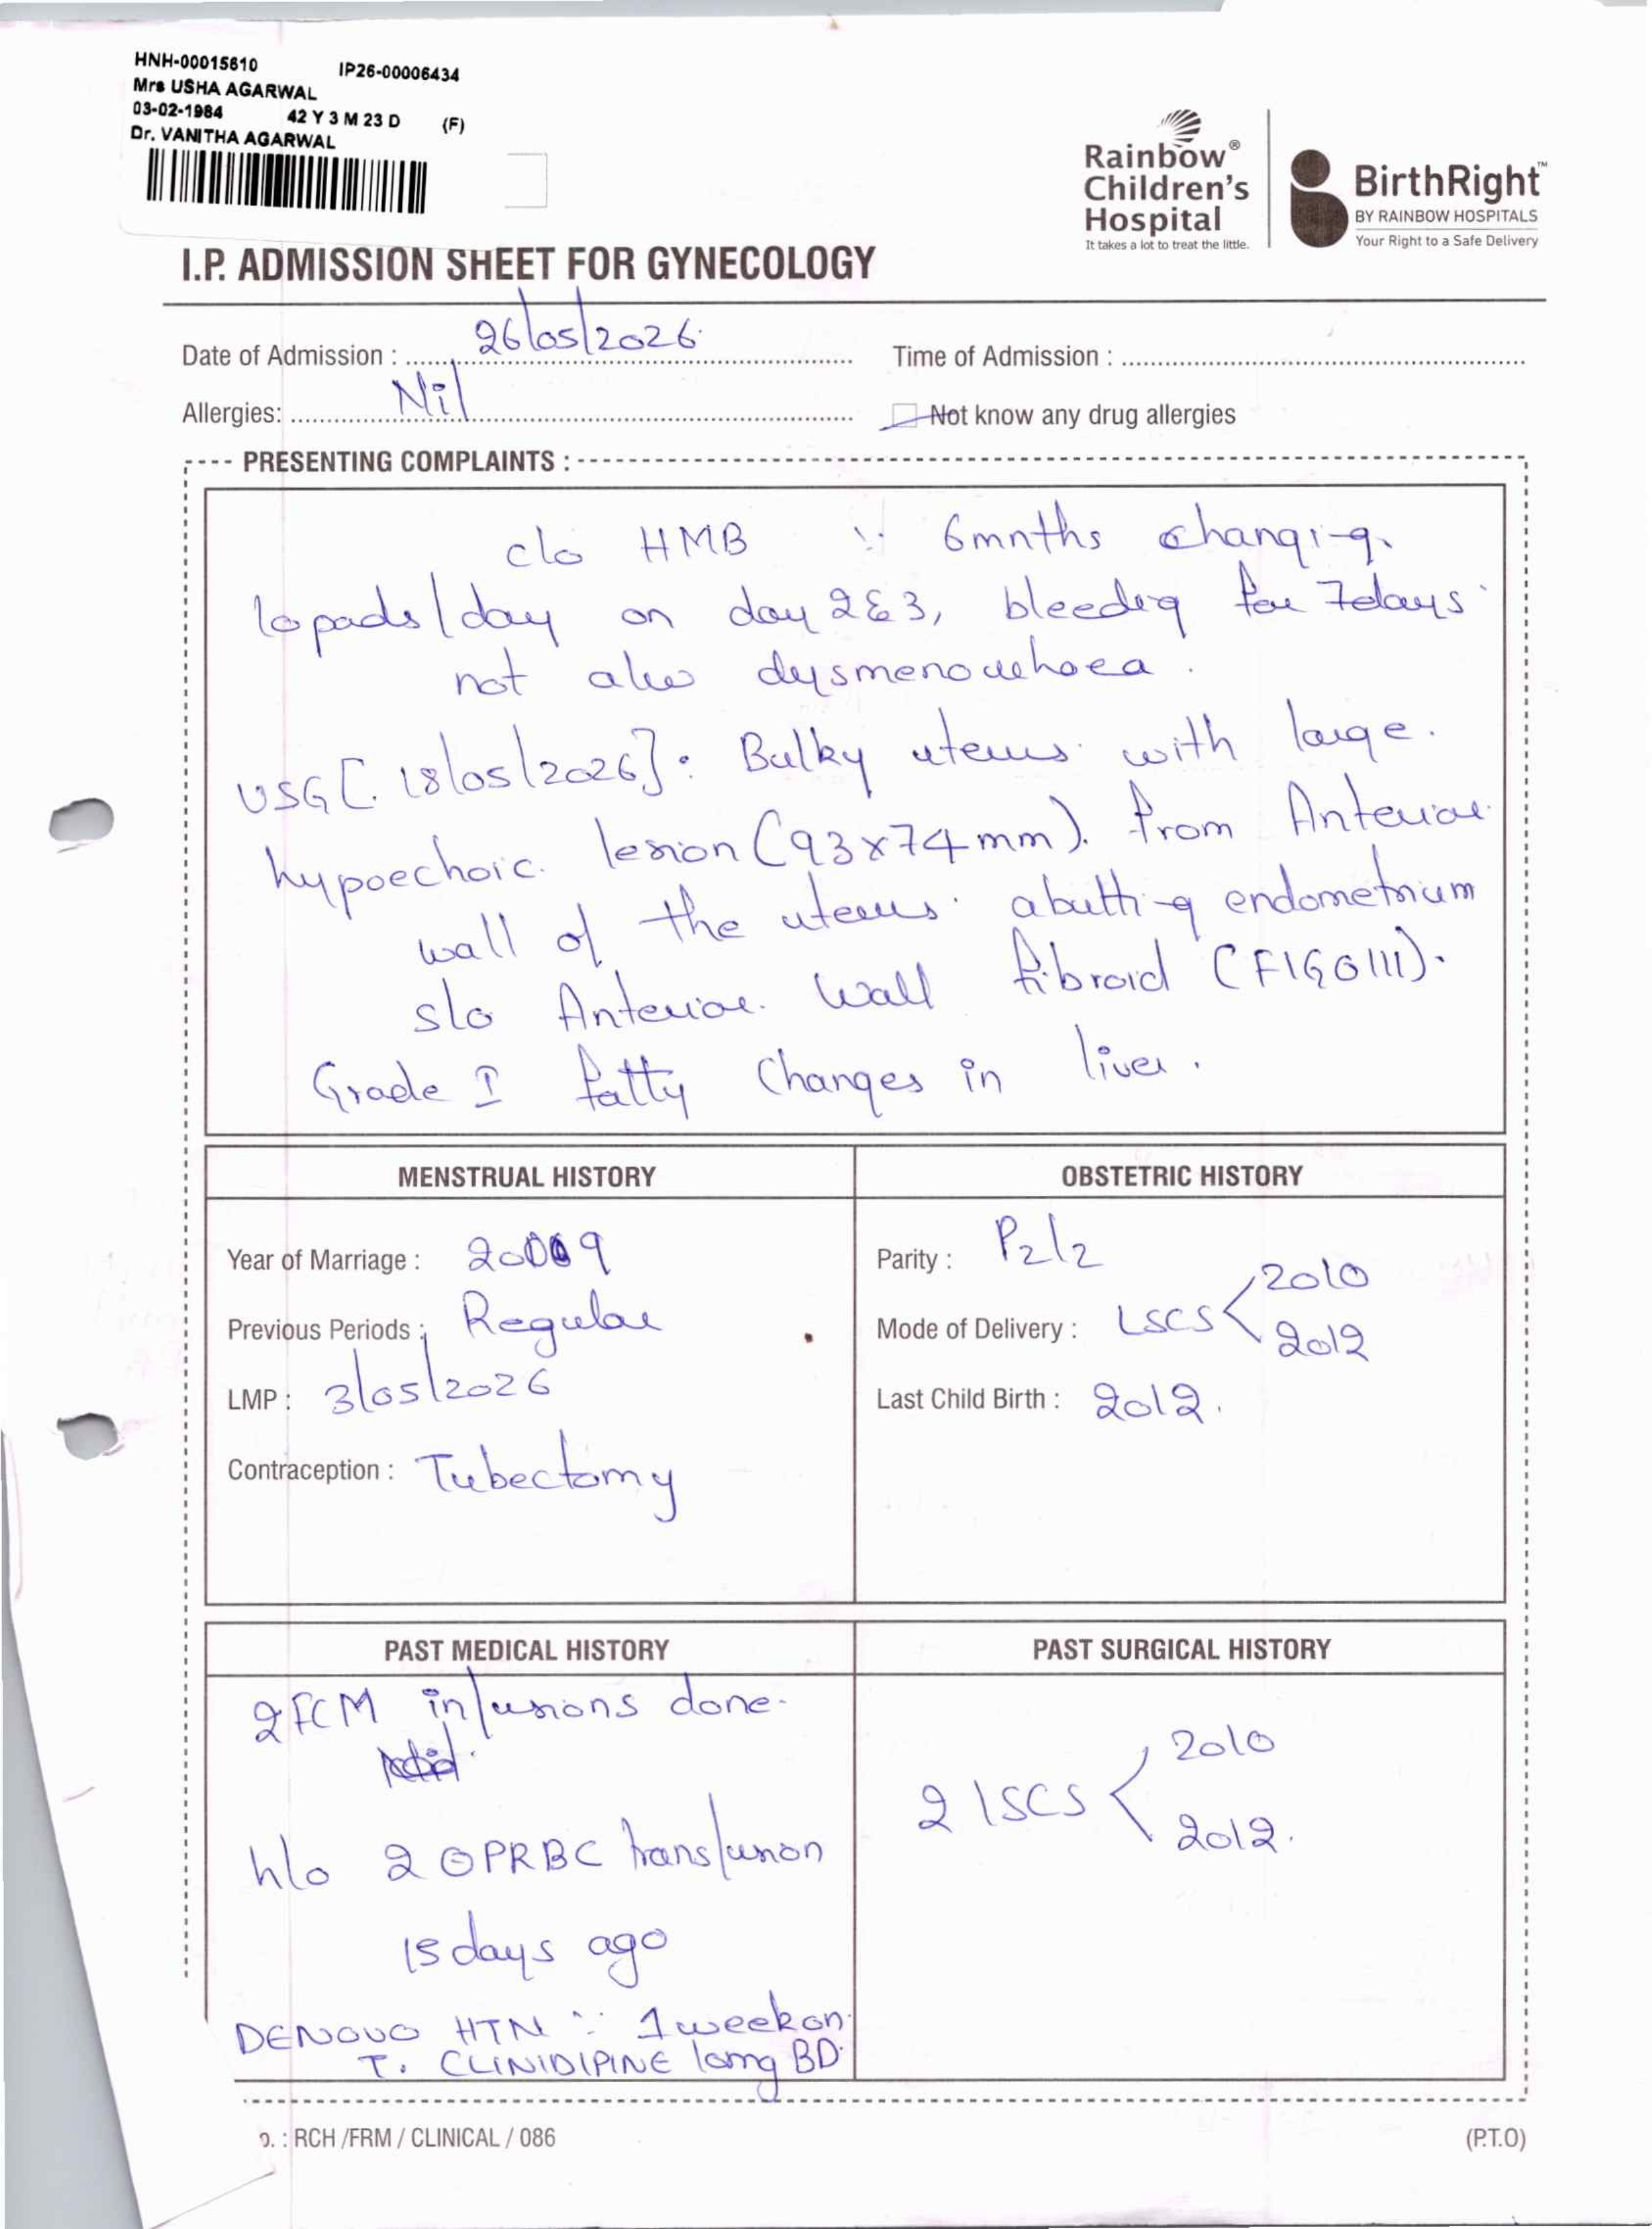 HNH-00015610 IP26-00006434
Mrs USHA AGARWAL
03-02-1984 42 Y 3 M 23 D (F)
Dr. VANITHA AGARWAL
Rainbow®
Children's
Hospital
It takes a lot to treat the little.
BirthRight™
BY RAINBOW HOSPITALS
Your Right to a Safe Delivery
I.P. ADMISSION SHEET FOR GYNECOLOGY
Date of Admission : 26/05/2026
Time of Admission :
Allergies: Nil
Not know any drug allergies
PRESENTING COMPLAINTS :
c/o HMB ∵ 6mnths changing
10pads/day on day 2&3, bleeding for 7days
not a/w dysmenorrhoea.
USG [18/05/2026]: Bulky uterus with large
hypoechoic lesion (93x74mm). from Anterior
wall of the uterus abutting endometrium
s/o Anterior wall fibroid (FIGO III).
Grade I fatty changes in liver.
MENSTRUAL HISTORY
Year of Marriage : 2009
Previous Periods : Regular
LMP : 3/05/2026
Contraception : Tubectomy
OBSTETRIC HISTORY
Parity : P2L2
Mode of Delivery : LSCS < 2010
2012
Last Child Birth : 2012.
PAST MEDICAL HISTORY
2 FCM infusions done.
h/o 2 ⊙PRBC transfusion
15 days ago
DENOVO HTN ∵ 1 week on
T. CLINIDIPINE 10mg BD
PAST SURGICAL HISTORY
2 LSCS < 2010
2012.
: RCH /FRM / CLINICAL / 086
(P.T.O)